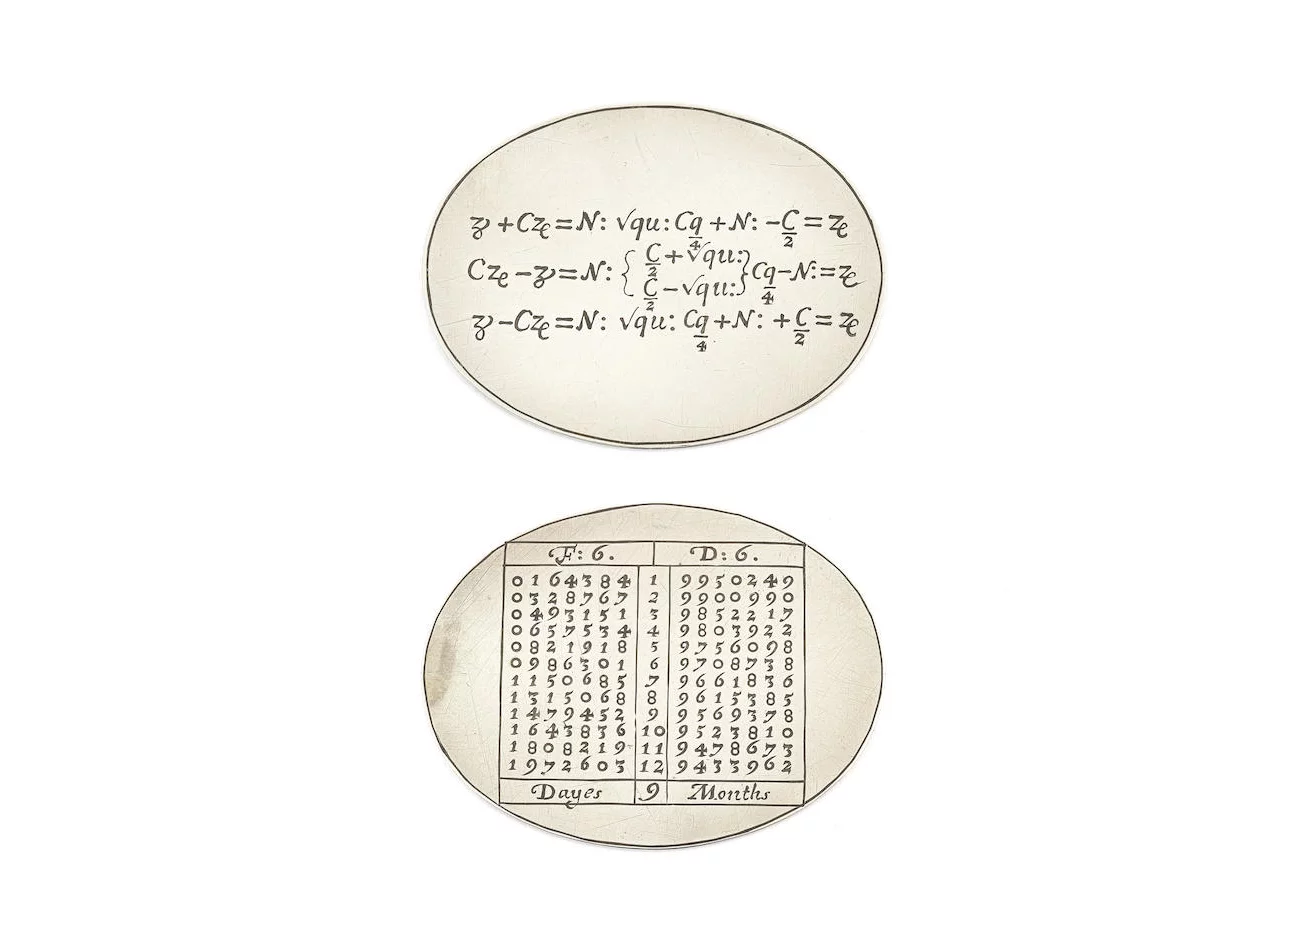 ʒ + Cze = N: √qu: Cq/4 + N: - C/2 = ze
Cze - ʒ = N: { C/2 + √qu: C/2 - √qu: } Cq/4 - N: = ze
ʒ - Cze = N: √qu: Cq/4 + N: + C/2 = ze
F: 6. D: 6.
0164384 1 9950249
0328767 2 9900990
0493151 3 9852217
0657534 4 9803922
0821918 5 9756098
0986301 6 9708738
1150685 7 9661836
1315068 8 9615385
1479452 9 9569378
1643836 10 9523810
1808219 11 9478673
1972603 12 9433962
Dayes 9 Months